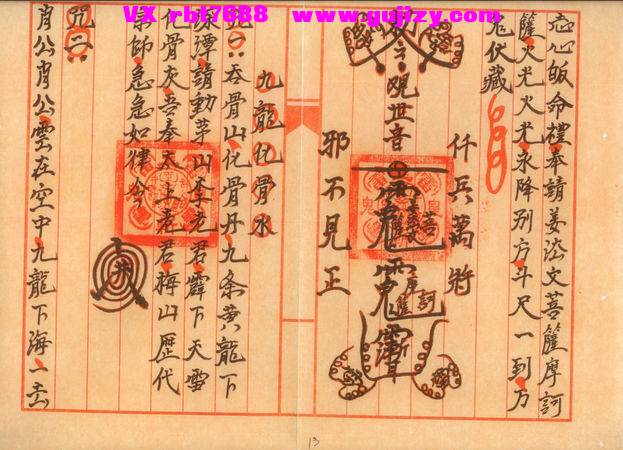 VX rbt7888 www.gujizy.com
志心皈命禮奉請姜法文菩薩摩訶
薩火光火光永降別方斗尺一到万
鬼伏藏
仟兵萬将
观世音
菩
薩
摩
訶
薩
邪不見正
九龍化骨水
咒一吞骨山化骨丹九条黄龍下
深潭請動茅山李老君霹下天雷
化骨灰吾奉太上老君梅山歷代
宗師急急如律令
咒二
肖公肖公雲在空中九龍下海一去
13